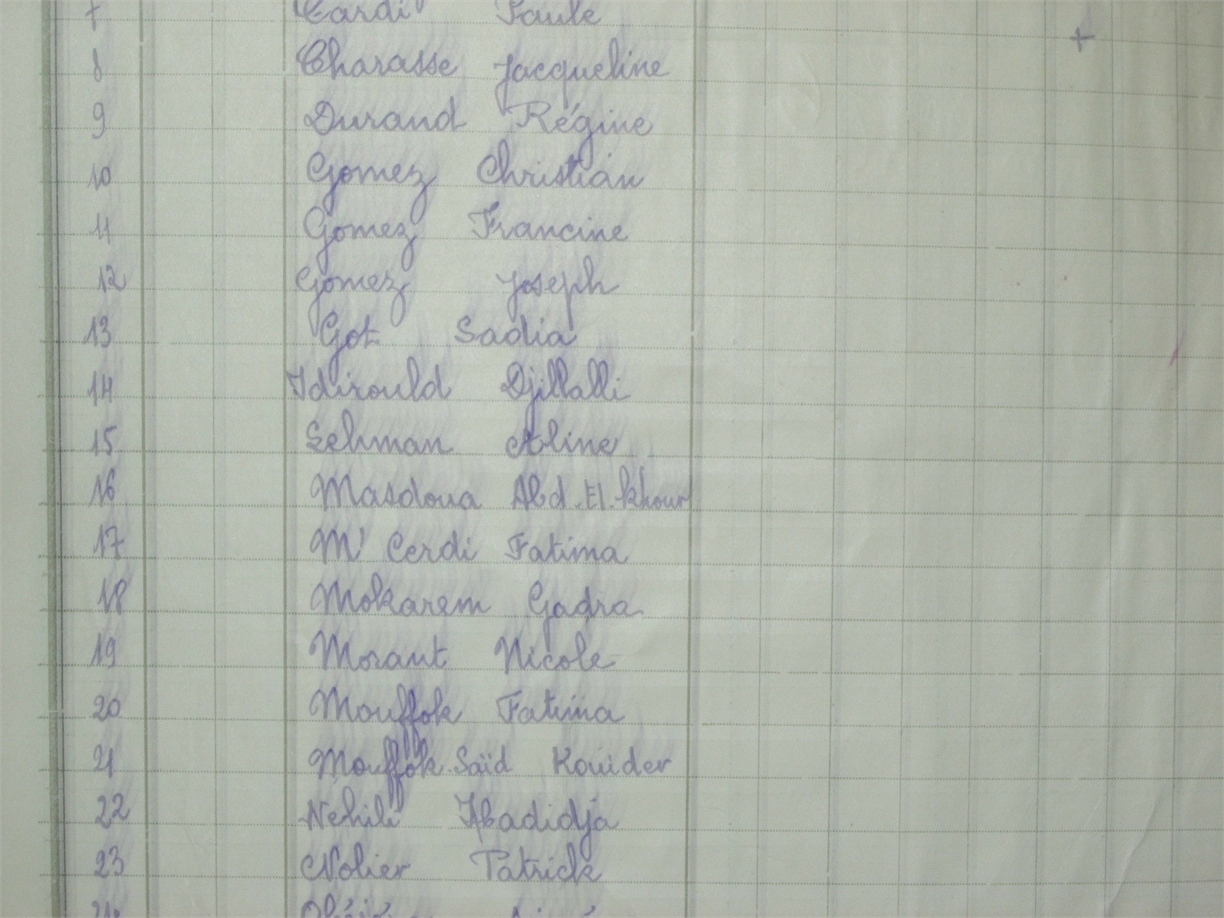 7 Cardi Paule
8 Charasse Jacqueline
9 Durand Régine
10 Gomez Christian
11 Gomez Francine
12 Gomez Joseph
13 Got Sadia
14 Idirould Djillalli
15 Lehman Aline
16 Masdoua Abd.El.khour
17 M' Cerdi Fatima
18 Mokarem Gadra
19 Morant Nicole
20 Mouffok Fatima
21 Mouffok Saïd Kouider
22 Nehili Khadidja
23 Nolier Patrick